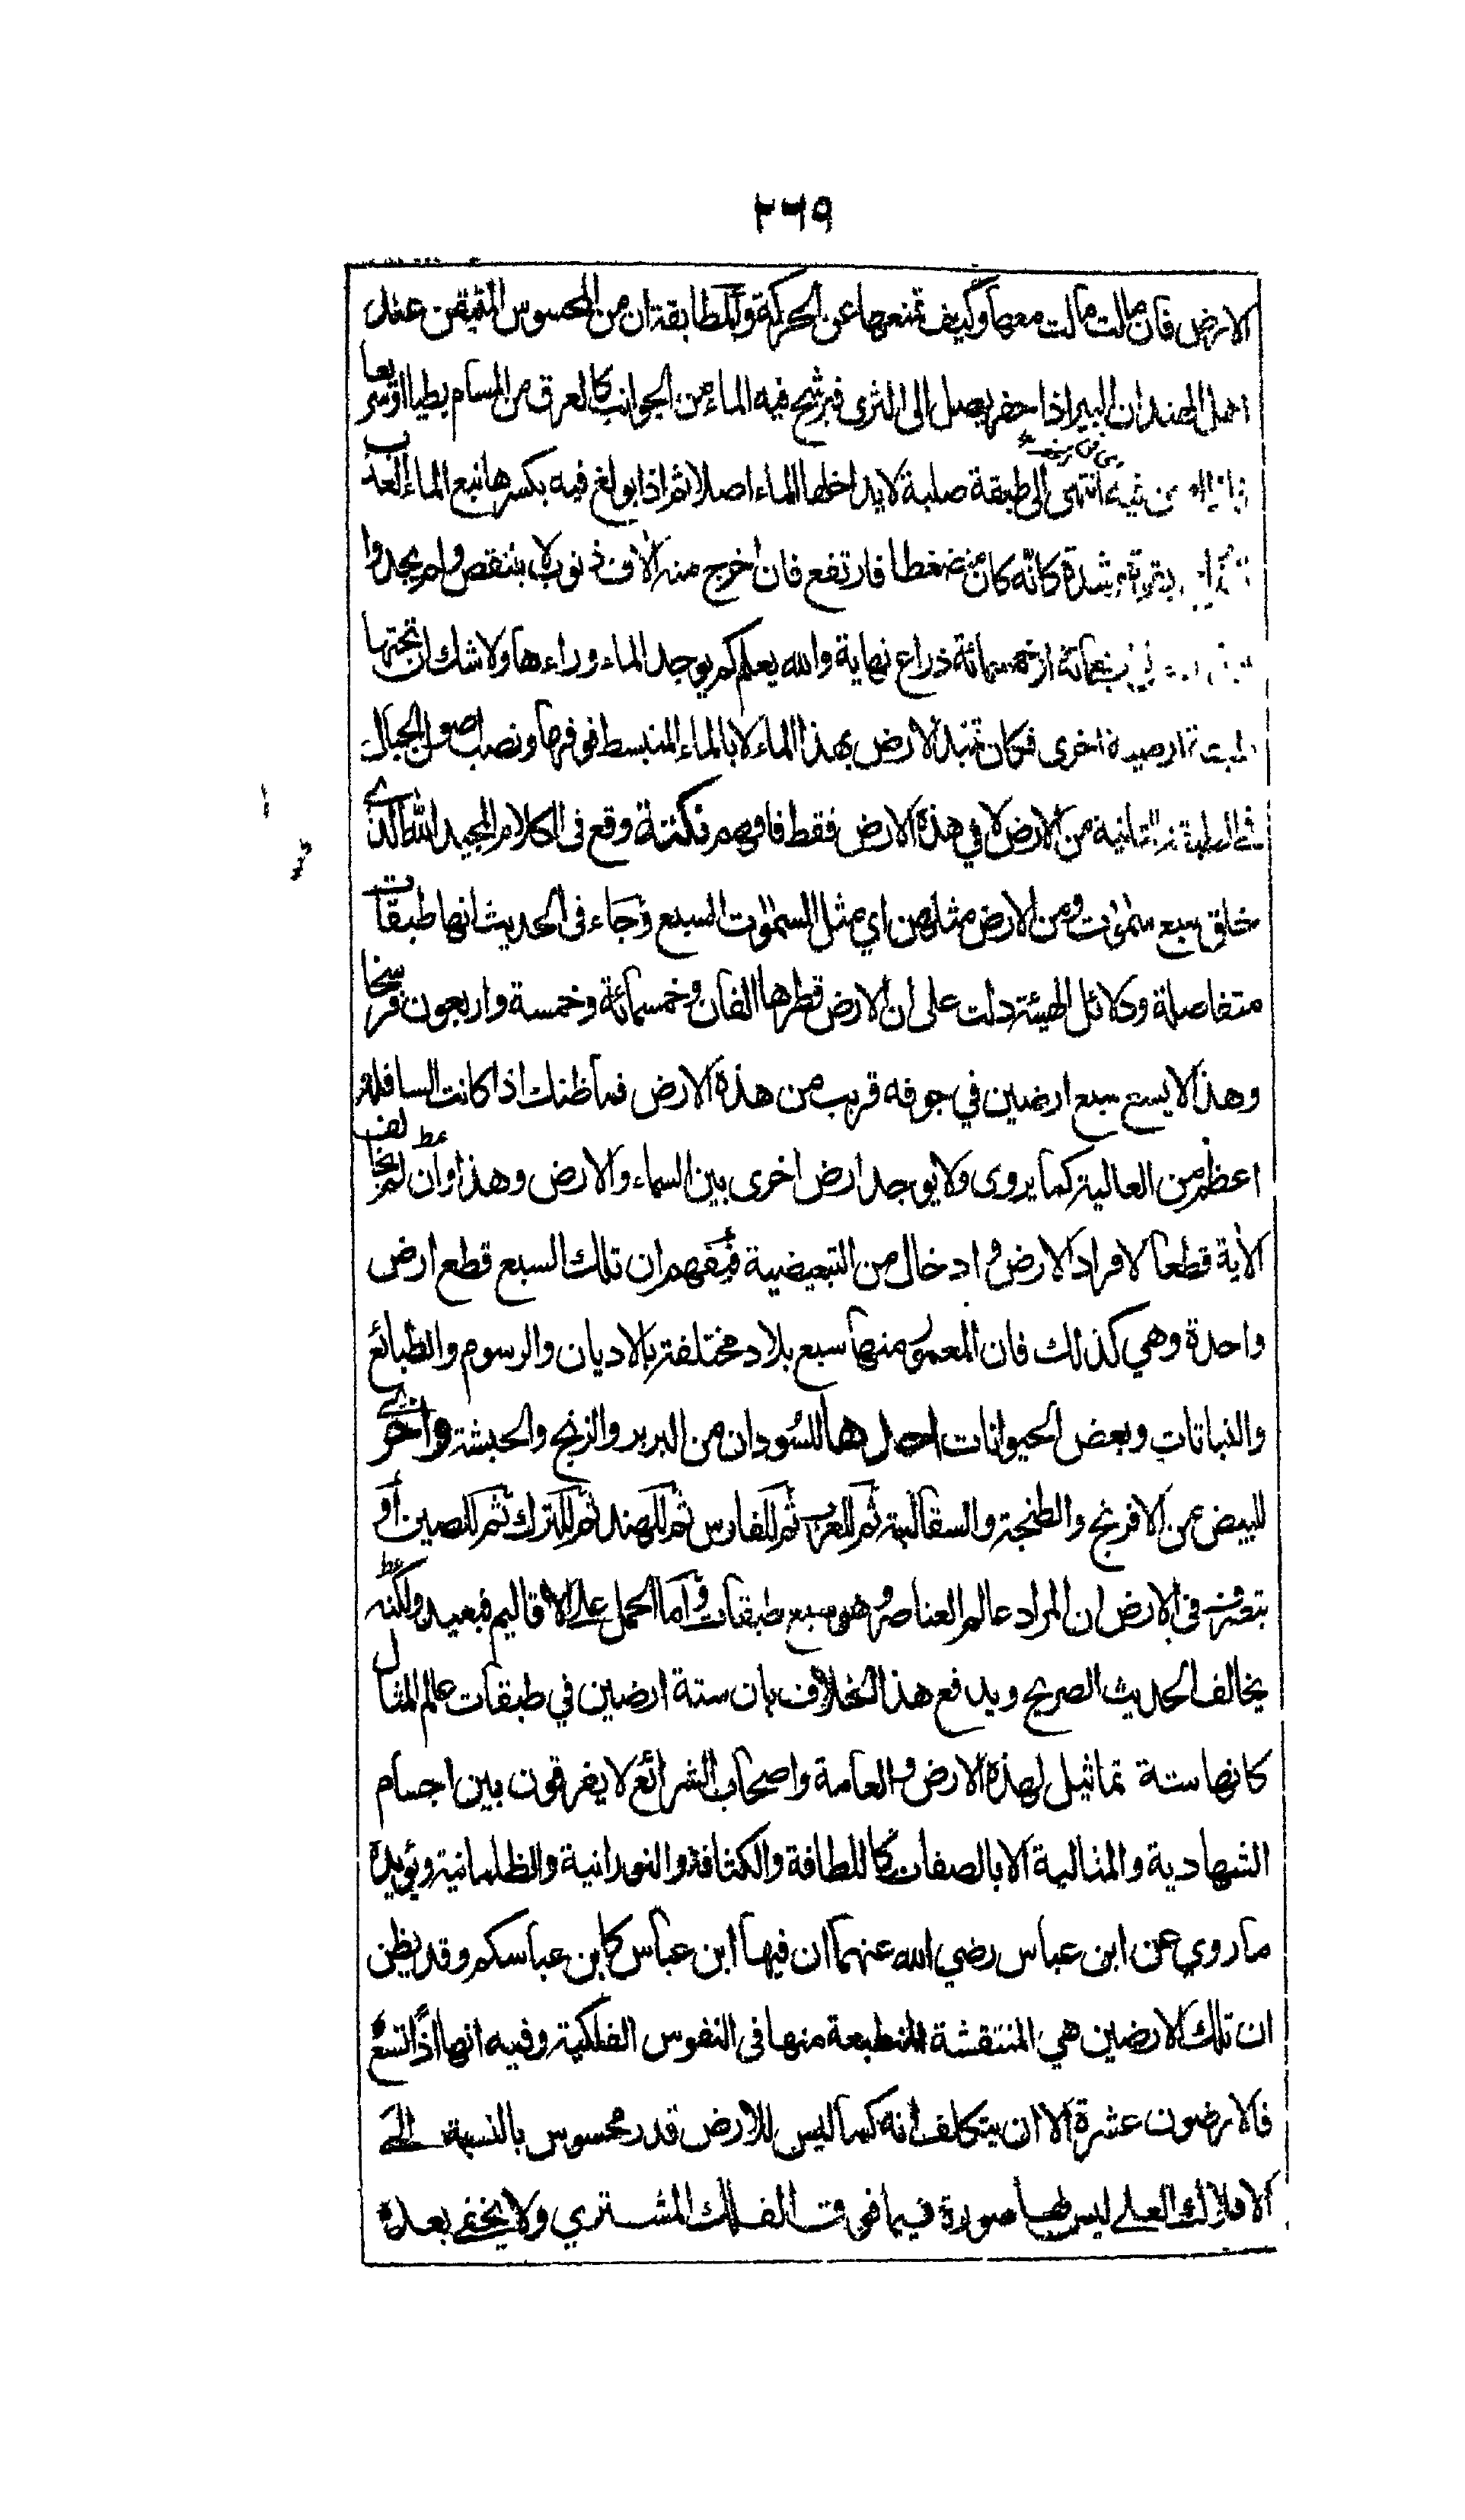 ٢٦٩
الارض فان مالت مالت معها وكيف تمنعها عن الحركة والمطابقة ان من المحسوس المتيقن عند
اهل الهند ان البير اذا حفر يصل الى الثرى فيرشح فيه الماء من الجوانب كالعرق من المسام بطيا او سريعا
انتهى الى طبقة صلبة لا يداخلها الماء اصلا ثم اذا بولغ فيه بكسرها نبع الماء العذب
شدة كانه كان منضغطا فارتفع فان اخرج منه آلاف ذنوب لا ينتقص ولم يجدوا
خمسمائة ذراع نهاية والله يعلم كم يوجد الماء وراءها ولا شك ان تحتها
ارضية اخرى فكان تميد الارض بهذا الماء لا بالماء المنبسط فوقها ونصب اصول الجبال
في الطبقة الثانية من الارض لا في هذه الارض فقط فافهم نكتة وقع في الكلام المجيد الله الذي
خلق سبع سموات ومن الارض مثلهن اي مثل السموات السبع وجاء في الحديث انها طبقات
متفاصلة ودلائل الهيئة دلت على ان الارض قطرها الفان وخمسمائة وخمسة واربعون فرسخا
وهذا لا يسع سبع ارضين في جوفه قريب من هذه الارض فما ظنك اذا كانت السافلة
اعظم من العالية كما يروى ولا يوجد ارض اخرى بين السماء والارض وهذا وان لم يخالف
الآية قطعا لافراد الارض وادخال من التبعيضية فيفهم ان تلك السبع قطع ارض
واحدة وهي كذلك فان المعمور منها سبع بلاد مختلفة بالاديان والرسوم والطبائع
والنباتات وبعض الحيوانات احدها للسودان من البربر والزنج والحبشة واخرى
للبيض من الافرنج والطنجة والسقالبة ثم للعرب ثم للفارس ثم للهند ثم للترك ثم للصين او
يتصرف في الارض ان المراد عالم العناصر وهو سبع طبقات واما الحمل على الاقاليم فبعيد ولكنه
يخالف الحديث الصريح ويدفع هذا الخلاف بان ستة ارضين في طبقات عالم المثال
كانها ستة تماثيل لهذه الارض والعامة واصحاب الشرائع لا يفرقون بين اجسام
الشهادية والمثالية الا بالصفات كاللطافة والكثافة والنورانية والظلمانية ويؤيده
ما روي عن ابن عباس رضي الله عنهما ان فيها ابن عباس كابن عباسكم وقد يظن
ان تلك الارضين هي المنتقشة المنطبعة منها في النفوس الفلكية وفيه انها اذا تسع
فالارضون عشرة الا ان يتكلف انه كما ليس للارض قدر محسوس بالنسبة الى
الافلاك العلى ليس لها صورة فيما فوق الفلك المشتري ولا يخفى بعده